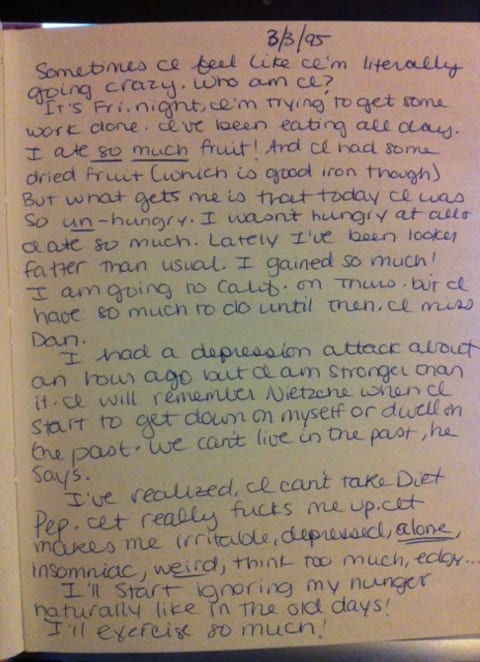 3/3/95
Sometimes I feel like I'm literally
going crazy. Who am I?
It's Fri. night, I'm trying to get some
work done. I've been eating all day.
I ate so much fruit! And I had some
dried fruit (which is good iron though)
But what gets me is that today I was
so un-hungry. I wasn't hungry at all &
I ate so much. Lately I've been lookin
fatter than usual. I gained so much!
I am going to Calif. on Thurs. but I
have so much to do until then. I miss
Dan.
I had a depression attack about
an hour ago but I am stronger than
it. I will remember Nietzche when I
start to get down on myself or dwell on
the past. We can't live in the past, he
says.
I've realized, I can't take Diet
Pep. It really fucks me up. It
makes me irritable, depressed, alone,
insomniac, weird, think too much, edgy...
I'll start ignoring my hunger
naturally like in the old days!
I'll exercise so much!